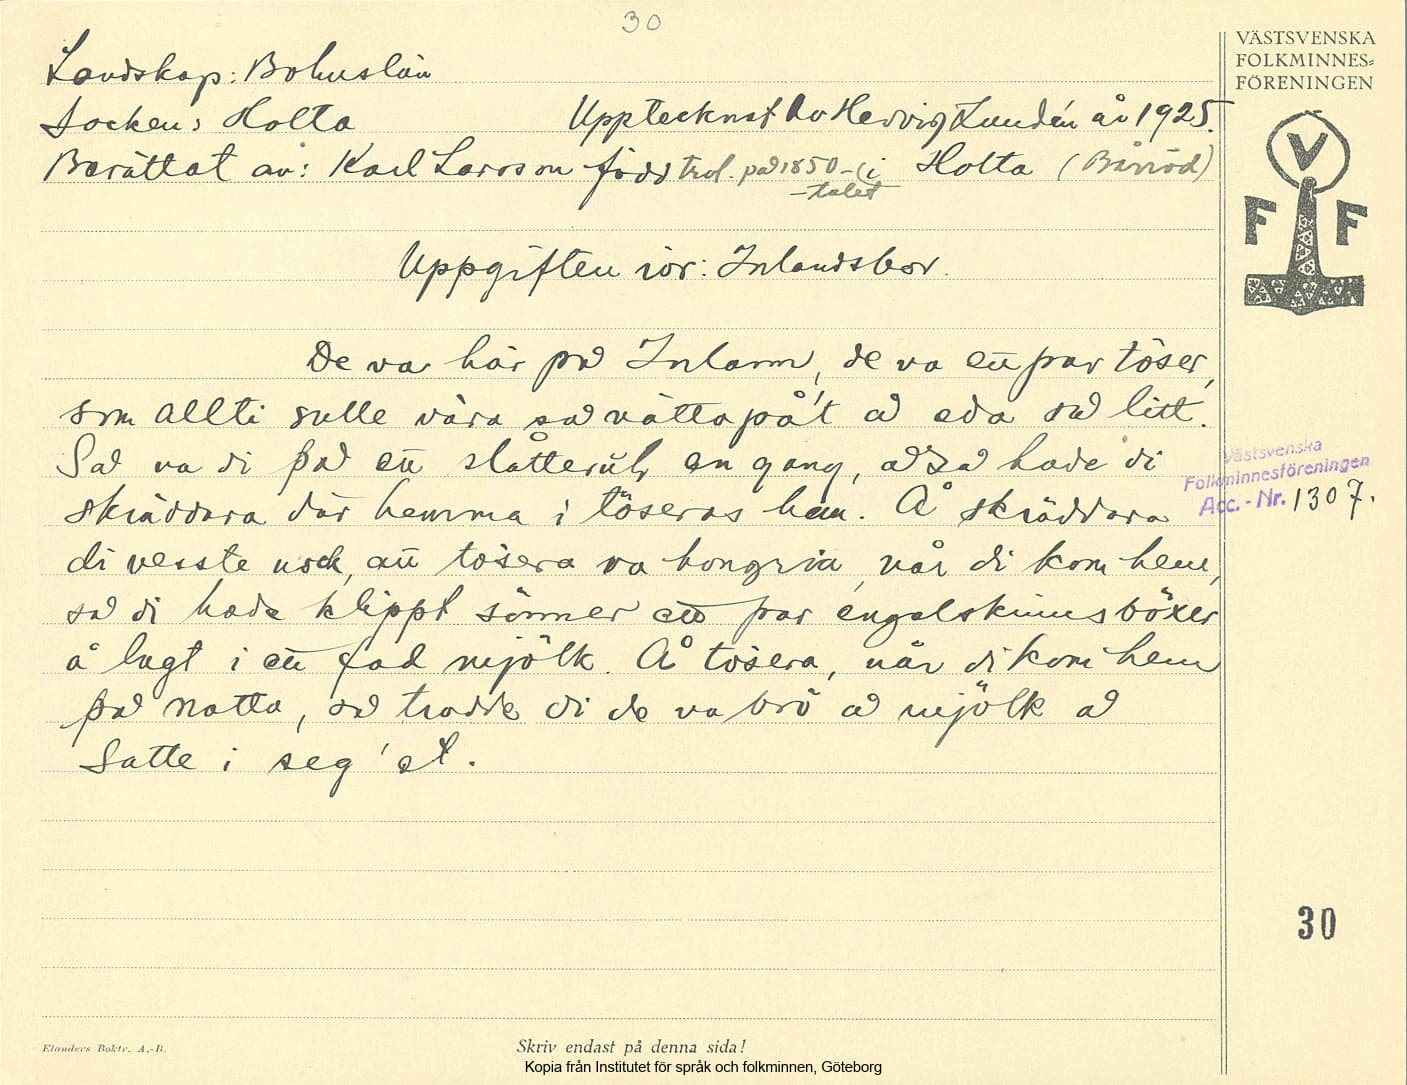 30
Landskap: Bohuslän
Socken: Holta
Upptecknat av Hervig Lundén år 1925.
Berättat av: Karl Larsson född trol. på 1850- i Holta (Bärröd)
-talet
Uppgiften rör: Inlandsbor.
De va här på Inlann, de va ett par töser,
som allti sulle vära så rätta på't å eda så litt.
Så va di på ett slåtteröl en gang, å så hade di
skräddara där hemma i töseras hem. Å skräddara
di vesste nock, att tösera va hongria, når di kom hem,
så di hade klippt sönner ett par engelskinnsböxer
å lagt i ett fad mjölk. Å tösera, når di kom hem
på natta, så trodde di de va brö å mjölk å
satte i seg 'et.
VÄSTSVENSKA
FOLKMINNES=
FÖRENINGEN
V
F F
Västsvenska
Folkminnesföreningen
Acc.-Nr. 1307.
30
Elanders Boktr. A.-B.
Skriv endast på denna sida!
Kopia från Institutet för språk och folkminnen, Göteborg